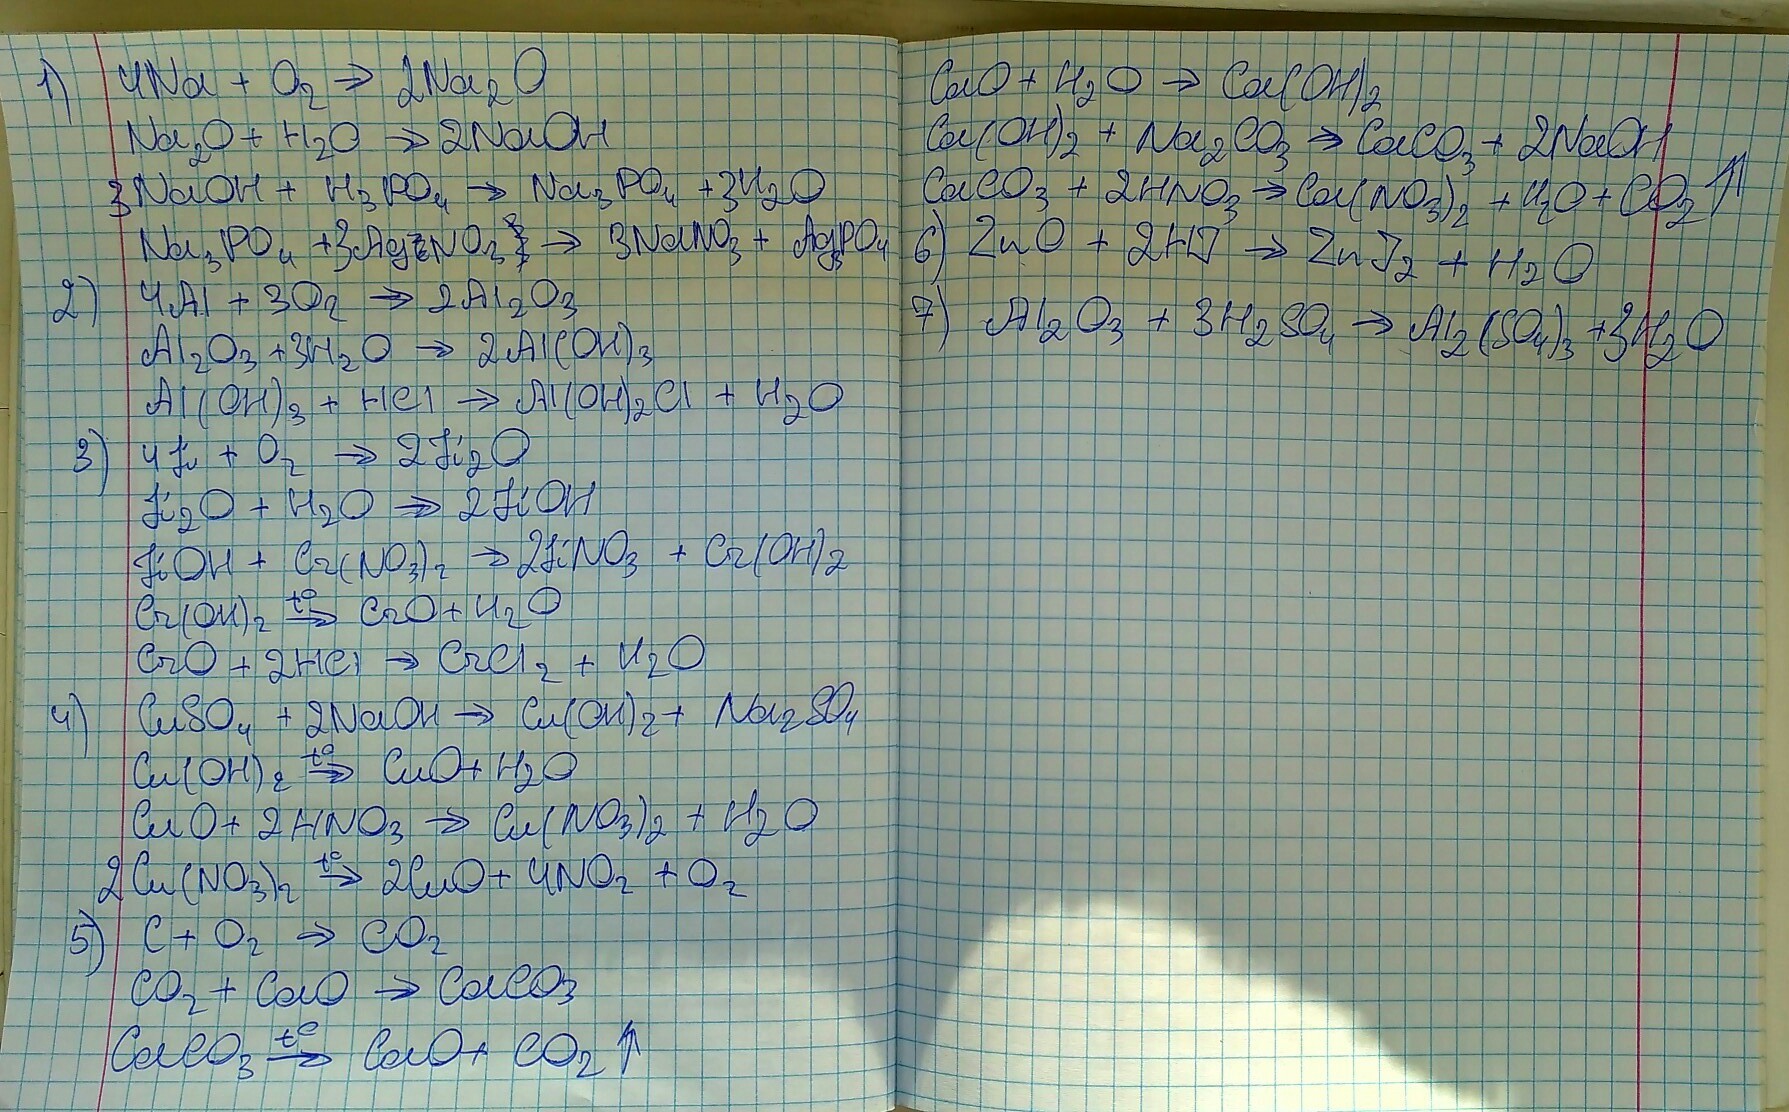 1) 4Na + O₂ → 2Na₂O
Na₂O + H₂O → 2NaOH
3NaOH + H₃PO₄ → Na₃PO₄ + 3H₂O
Na₃PO₄ + 3AgNO₃ → 3NaNO₃ + Ag₃PO₄
2) 4Al + 3O₂ → 2Al₂O₃
Al₂O₃ + 3H₂O → 2Al(OH)₃
Al(OH)₃ + HCl → Al(OH)₂Cl + H₂O
3) 4Li + O₂ → 2Li₂O
Li₂O + H₂O → 2LiOH
LiOH + Cr(NO₃)₂ → 2LiNO₃ + Cr(OH)₂
Cr(OH)₂ t°→ CrO + H₂O
CrO + 2HCl → CrCl₂ + H₂O
4) CuSO₄ + 2NaOH → Cu(OH)₂ + Na₂SO₄
Cu(OH)₂ t°→ CuO + H₂O
CuO + 2HNO₃ → Cu(NO₃)₂ + H₂O
2Cu(NO₃)₂ t°→ 2CuO + 4NO₂ + O₂
5) C + O₂ → CO₂
CO₂ + CaO → CaCO₃
CaCO₃ t°→ CaO + CO₂ ↑
CaO + H₂O → Ca(OH)₂
Ca(OH)₂ + Na₂CO₃ → CaCO₃ + 2NaOH
CaCO₃ + 2HNO₃ → Ca(NO₃)₂ + H₂O + CO₂ ↑
6) ZnO + 2HJ → ZnJ₂ + H₂O
7) Al₂O₃ + 3H₂SO₄ → Al₂(SO₄)₃ + 3H₂O